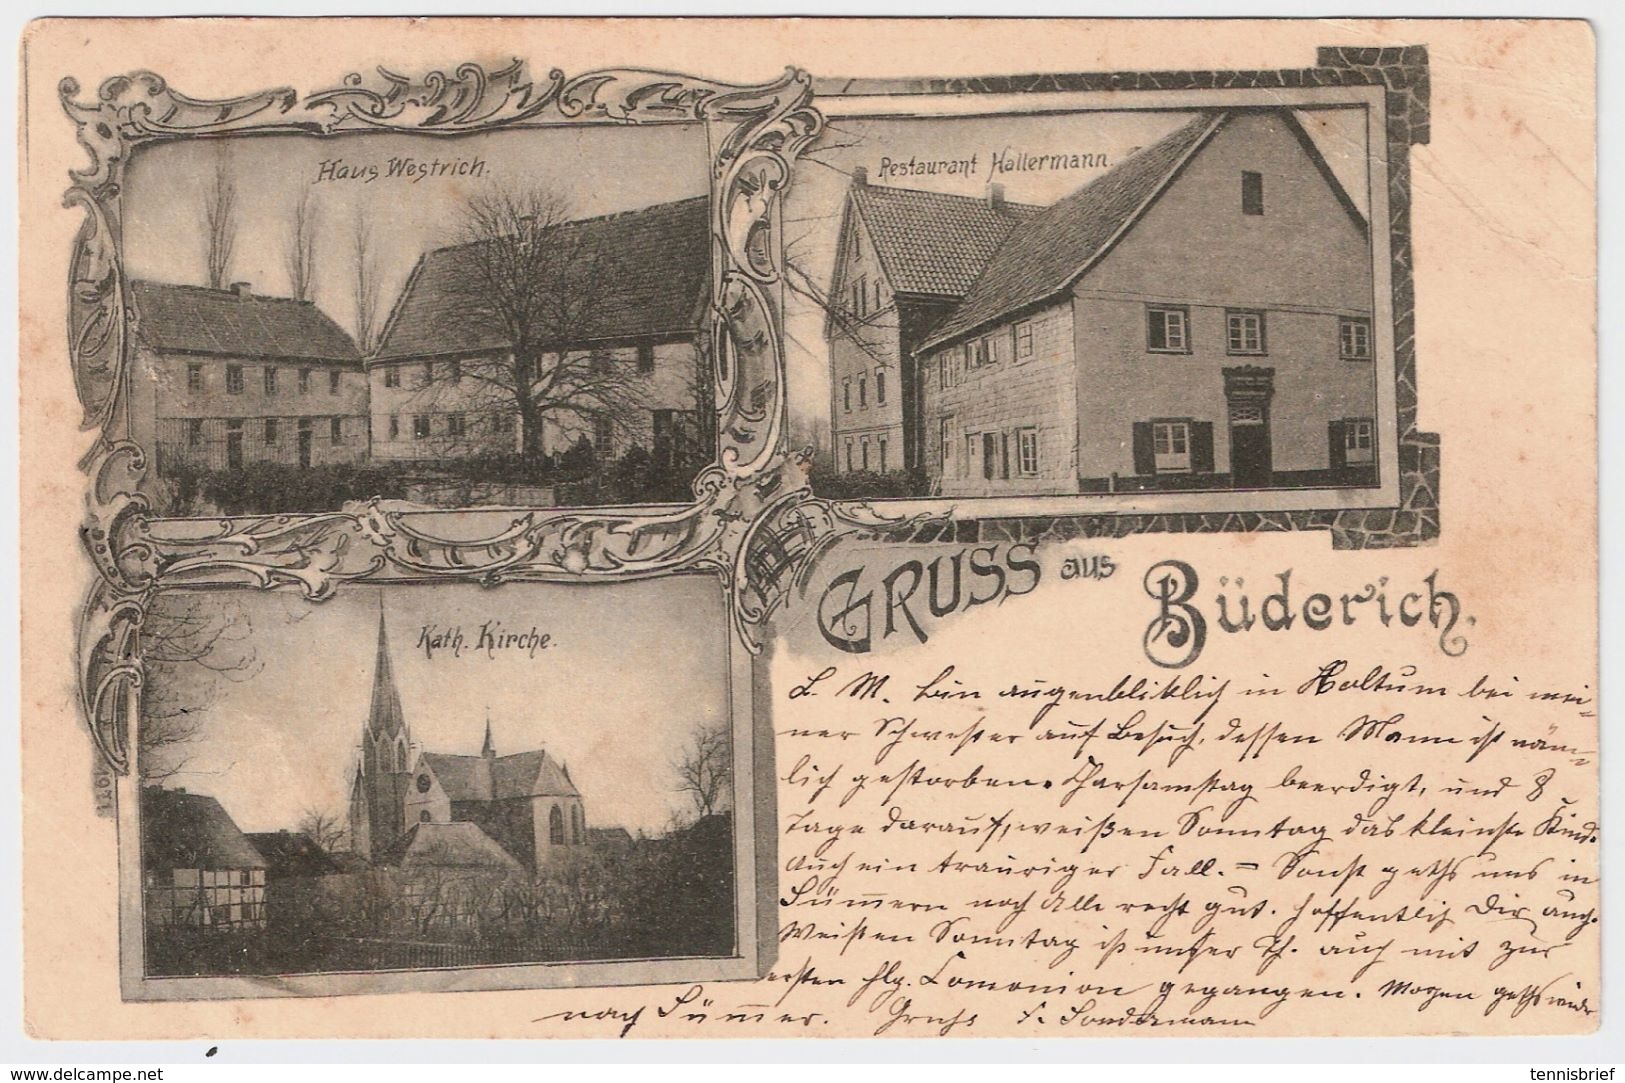 Haus Westrich.
Restaurant Hallermann.
Kath. Kirche.
GRUSS aus Büderich.
L. M. bin augenbliklich in Holtum bei mei-
ner Schwester auf Besuch, dessen Mann ist näm-
lich gestorben. Charsamstag beerdigt, und 8
Tage darauf, weißen Sonntag das kleinste Kind.
Auch ein trauriger Fall. = Sonst gehts uns in
Sümmern noch Alle recht gut. hoffentlich Dir auch.
Weißen Sonntag ist unser Th. auch mit zur
ersten hlg. Comonion gegangen. Morgen gehts wieder
nach Sümmer. Gruhs F. Sondermann
1261
www.delcampe.net
tennisbrief